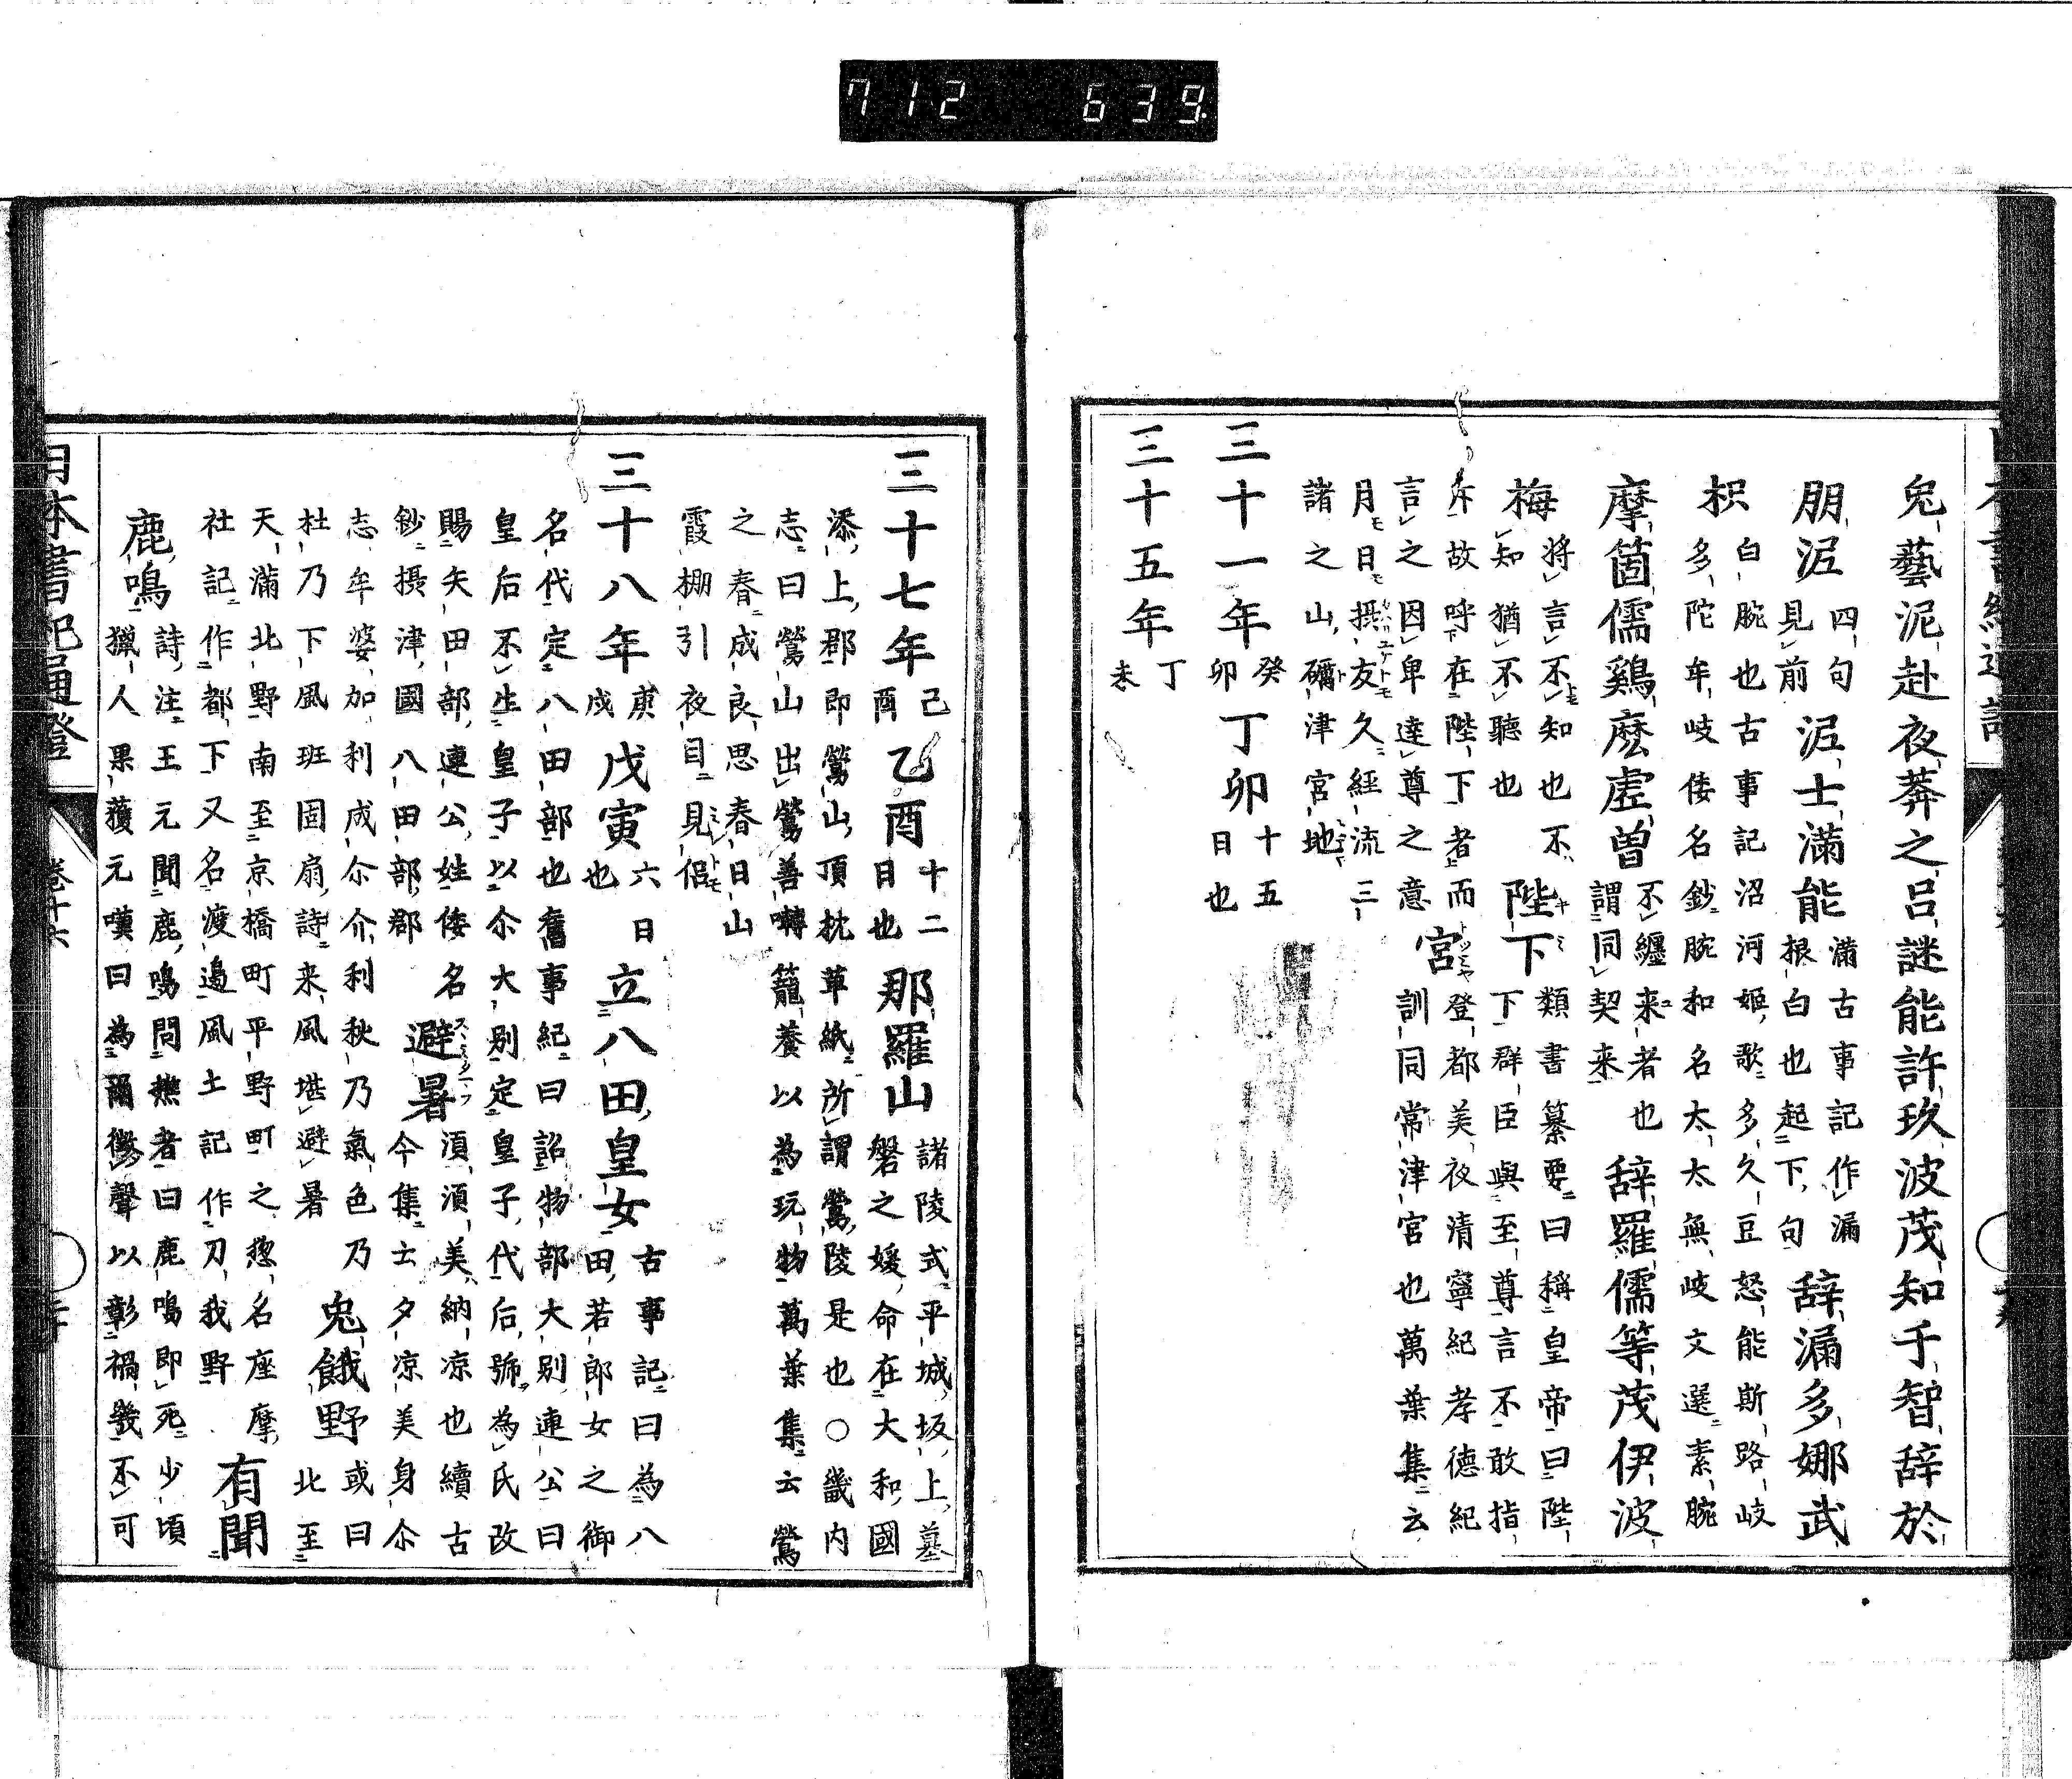 712 639
兔藝泥赴夜莽之呂謎能許玖波茂知于智辞於
朋泥 四句見前 泥士滿能 滿古事記作漏根白也起下句 辞漏多娜武
枳 白腕也古事記沼河姬歌多久豆怒能斯路岐多陀牟岐倭名鈔腕和名太太無岐文選素腕
摩箇儒鷄麽虛曽 不纏来者也謂同契来 辞羅儒等茂伊波
梅 將言不知也不知猶不聽也 陛下 類書纂要曰稱皇帝曰陛下群臣與至尊言不敢指
斥故呼在陛下者而 宮 登都美夜清寧紀孝德紀
言之因卑達尊之意 訓同常津宮也萬葉集云
月日攝友久經流三
諸之山礪津宮地
三十一年 癸卯 丁卯 十五日也
三十五年 丁未
三十七年 己酉 乙酉 十二日也 那羅山 諸陵式平城坂上墓磐之媛命在大和國
添上郡即鶯山頂枕草紙所謂鶯陵是也○畿内
志曰鶯山出鶯善囀籠養以為玩物萬葉集云鶯
之春成良思春日山
霞棚引夜目見侶
三十八年 庚戌 戊寅 六日也 立八田皇女 古事記曰為八田若郎女之御
名代定八田部也舊事紀曰詔物部大別連公曰
皇后不生皇子以尒大別定皇子代后號為氏改
賜矢田部連公姓倭名
鈔攝津國八田部郡 避暑 須須美納凉也續古今集士夕凉美身尒
志牟婆加利成尒介利秋乃氣色乃
杜乃下風班固扇詩来風堪避暑 兔餓野 或曰北至
天滿北野南至京橋町平野町之惣名座摩
社記作都下又名渡邉風土記作刀我野 有聞
鹿鳴 詩注王元聞鹿鳴問樵者曰鹿鳴即死少頃
獵人果獲元嘆曰為爾徵聲以彰禍幾不可
日本書紀通證
卷十六